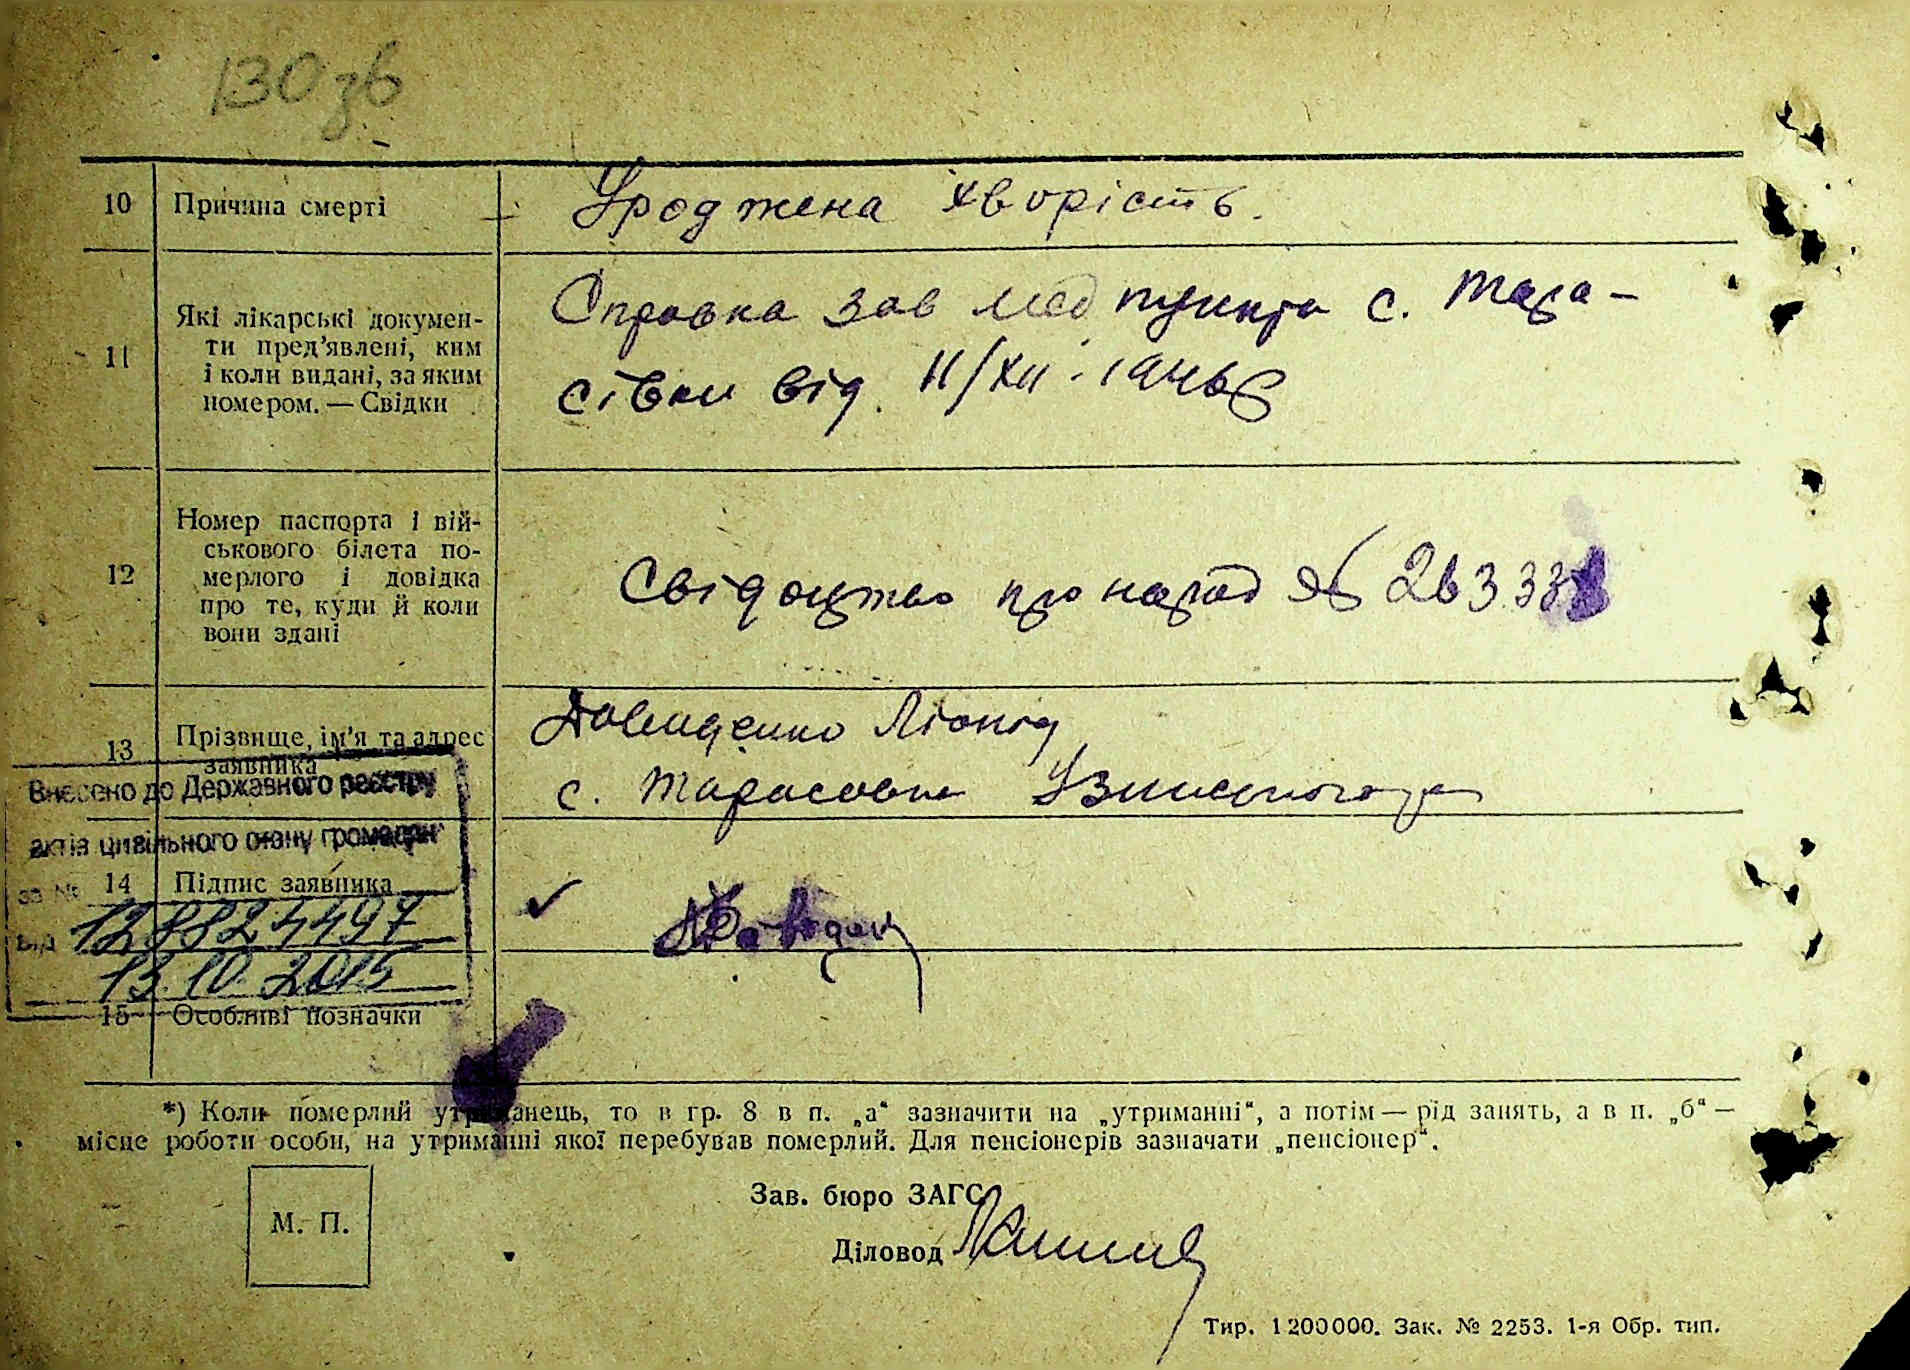 130 зв
10 Причина смерті Уроджена хворість.
11 Які лікарські докумен-
ти пред'явлені, ким
і коли видані, за яким
номером. — Свідки
Справка зав мед пункта с. Тара-
сівки від 11/XII
12 Номер паспорта і вій-
ськового білета по-
мерлого і довідка
про те, куди й коли
вони здані
Свідоцтво про народ № 26333
13 Прізвище, ім'я та адрес
заявника
Давиденко Леонід
с. Тарасовка
Внесено до Державного реєстру
актів цивільного стану громадян
за № 14 Підпис заявника
від 128824497
13.10.2015
15 Особливі позначки
*) Коли померлий утриманець, то в гр. 8 в п. „а“ зазначити на „утриманні“, а потім — рід занять, а в п. „б“ —
місце роботи особи, на утриманні якої перебував померлий. Для пенсіонерів зазначати „пенсіонер“.
М. П.
Зав. бюро ЗАГС
Діловод
Тир. 1200000. Зак. № 2253. 1-я Обр. тип.